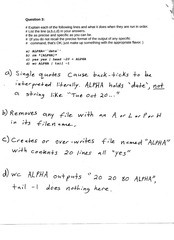 Question 5:
# Explain each of the following lines and what it does when they are run in order.
# List the line (a,b,c,d) in your answers.
# Be as precise and specific as you can be.
# (If you do not recall the precise format of the output of any specific
# command, that's OK, just make up something with the appropriate flavor.)
a) ALPHA='`date`'
b) rm *[ALPHA]*
c) yes yes | head -20 > ALPHA
d) wc ALPHA | tail -1
a) Single quotes cause back-ticks to be
interpreted literally. ALPHA holds `date`, not
a string like "Tue Oct 20..."
b) Removes any file with an A or L or P or H
in its filename.
c) Creates or over-writes file named "ALPHA"
with contents 20 lines all "yes"
d) wc ALPHA outputs " 20 20 80 ALPHA",
tail -1 does nothing here.